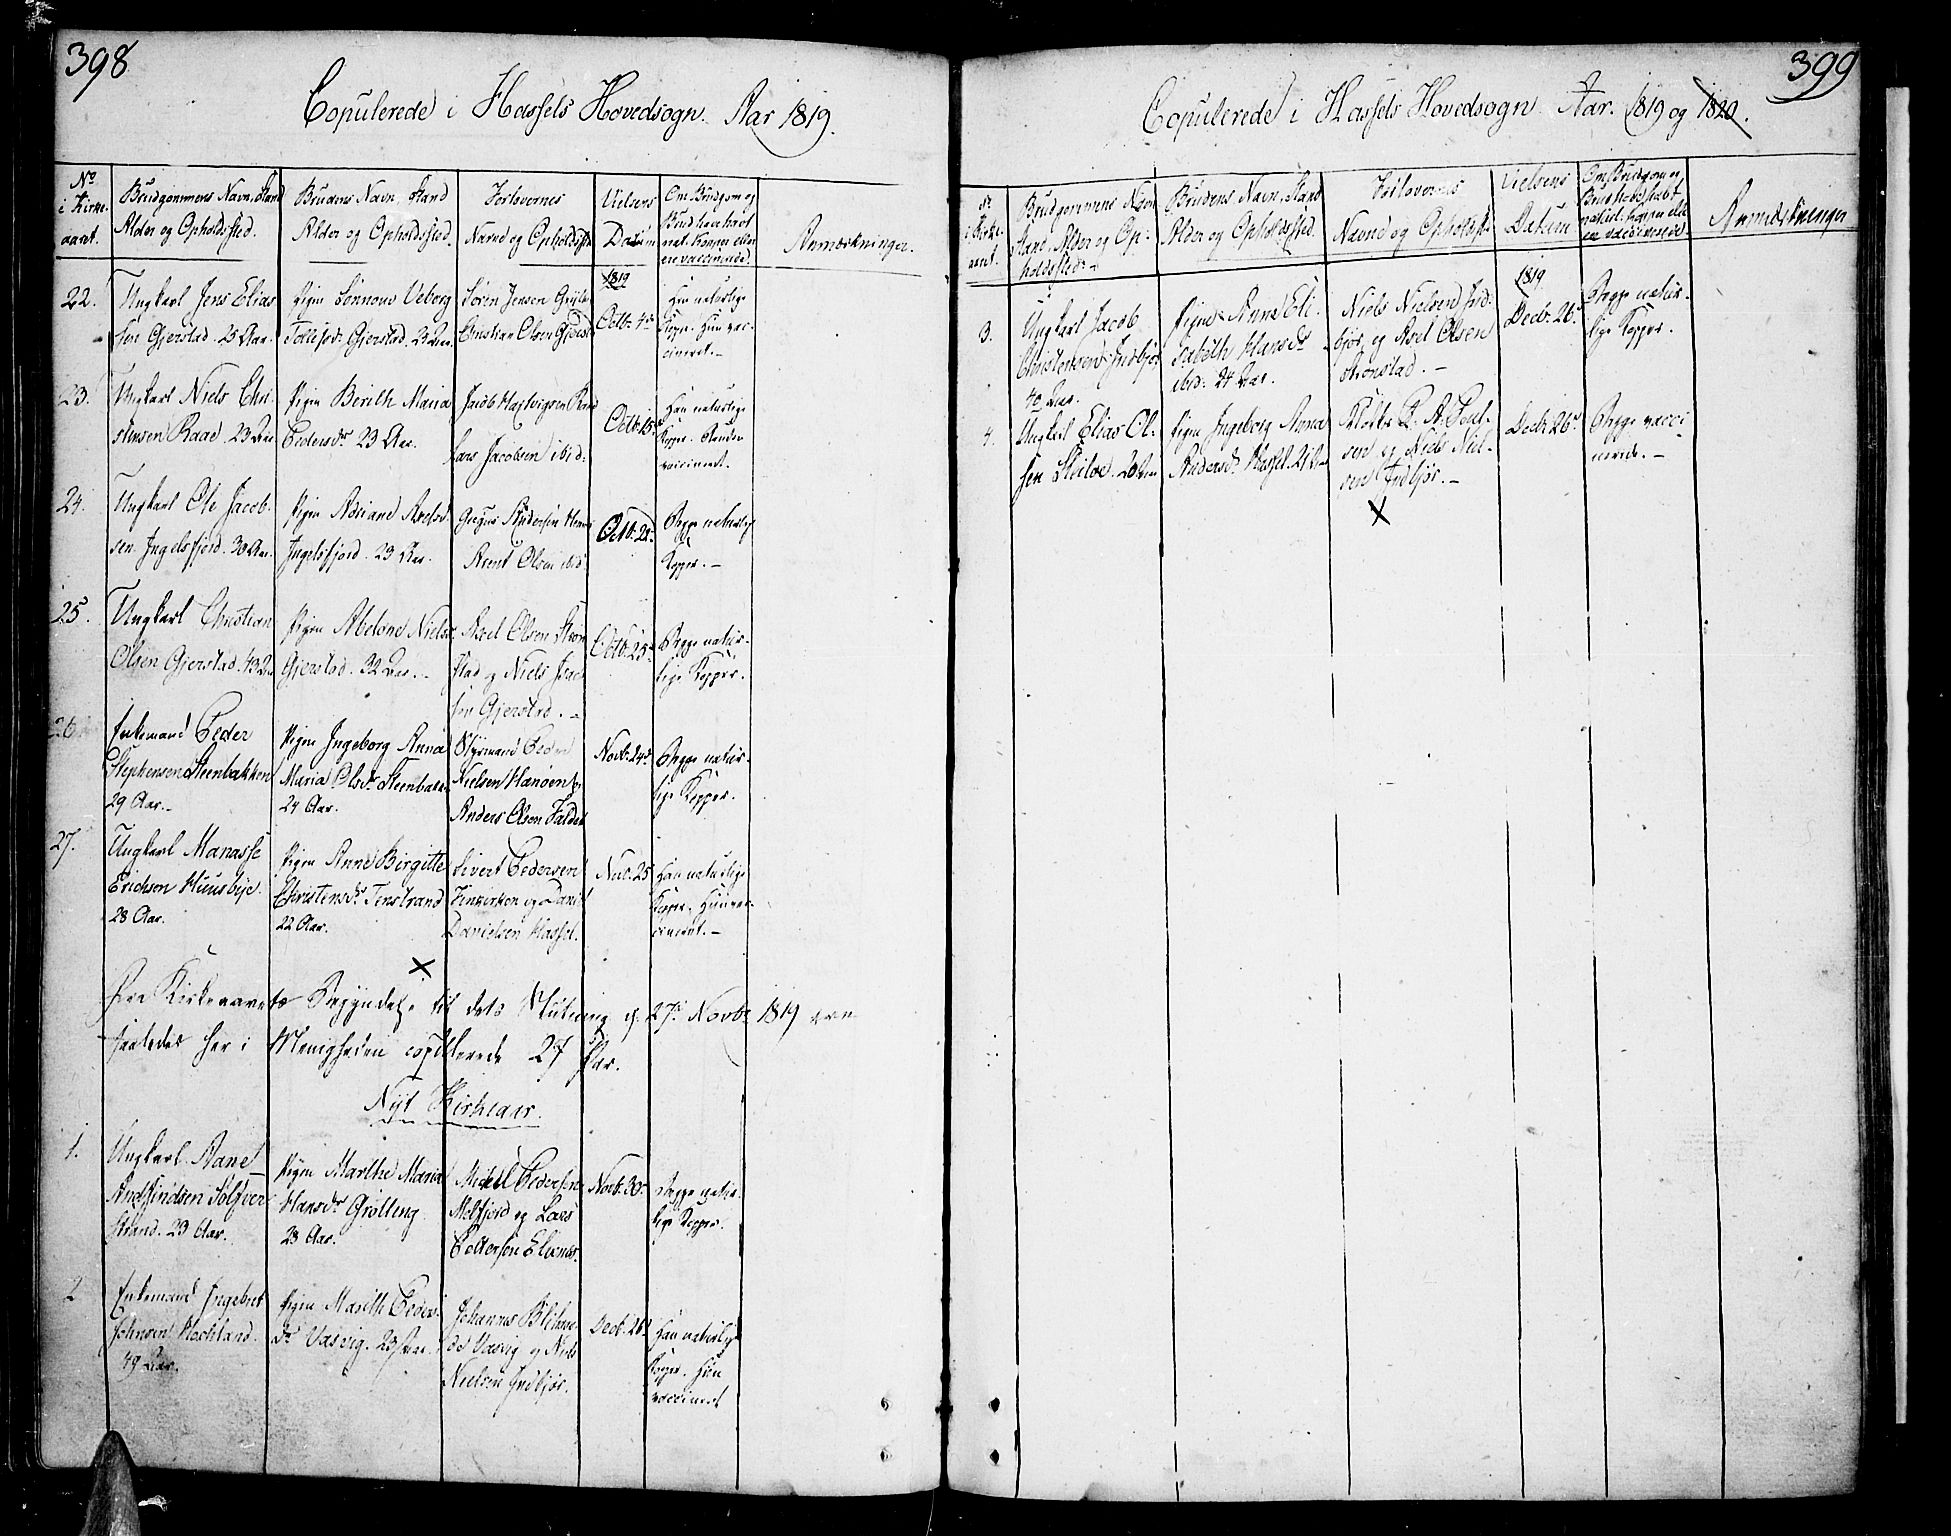 398
Copulerede i Hassels Hovedsogn. Aar 1819.
No i Kirke-aaret.
Brudgommens Navn, Stand
Alder og Opholdsted.
Brudens Navn, Stand
Alder og Opholdsted.
Forlovernes
Navne og Opholdsted
Vielsens
Datum
Om Brudgom og
Brud have havt
nat. Kopper eller
ere vaccinerede
Anmærkninger.
22.
Ungkarl Jens Elias
sen Gjerstad. 25 Aar.
Pigen Sønnove Veborg
Tollefsdr Gjerstad. 23 Aar.
Søren Jensen
Christian Olsen Gjerstad
1819
Octbr 4de
Han naturlige
Kopp. Hun vac-
cineret.-
23.
Ungkarl Niels Chri-
stensen Raae 23 Aar
Pigen Berith Maria
Pedersdr 23 Aar.
Jacob Hartvigsen
Lars Jacobsen ibid:
Octbr 15
Han naturlige
Kopp.
vaccineret.
24.
Ungkarl Ole Jacob-
sen Ingelsfjord. 30 Aar.
Pigen Adriane
Ingelsfjord. 23 Aar.
Andersen
Arent Olsen ibid:
Octbr 22
Begge naturlige
Kopper. -
25.
Ungkarl Christian
Olsen Gjerstad. 43 Aar
Pigen Abelone Nielsdr
Gjerstad. 32 Aar. -
Axel Olsen Strøn
stad og Niels
sen Gjerstad. -
Octbr 25
Begge natur-
lige Kopper.
26
Enkemand Peder
Stephensen Steenbakken
29 Aar.-
Pigen Ingeborg Anna
Maria Olsdr Steenbakken
24 Aar.
Styrmand Peder
Nielsen Hanøen og
Anders Olsen
Novbr 24de
Begge natur-
lige Kopper.
27.
Ungkarl Manasse
Erichsen Huusbye.
28 Aar.
Pigen Anne Birgitte
Christensdr Tenstrand
22 Aar.
Sivert Pedersen
og Daniel
Danielsen Hassel.
Nov. 25
Han naturlige
Kopper. Hun vac-
cineret. -
X
Fra Kirkeaarets Begyndelse til dets Slutning d. 27de Novbr 1819 ere
saaledes her i Menigheden copulerede 27 Par.
Nyt Kirkeaar.
1.
Ungkarl Aane
Amundsen
Strand. 23 Aar.
Pigen Marthe Maria
Hansdr Grøtting
23 Aar.
Mikkel Pedersen
Melfjord og Lars
Pettersen Elvenes.
Novbr 30
Begge natur-
lige Kopper.
2
Enkemand Ingebret
Johnsen
49 Aar.
Pigen Marith Peders-
dr Vasvig. 23 Aar.
Johannes
Vasvig og Niels
Nielsen Indbjør.
Decbr 26
Han naturlige
Kopper. Hun
vaccineret
399
Copulerede i Hassels Hovedsogn Aar. 1819 og 1820.
No
i Kirke-
aaret.
Brudgommens Navn
Stand, Alder og Op-
holdssted. -
Brudens Navn, Stand
Alder og Opholdssted.
Forlovernes
Navne og Opholdsst.
Vielsens
Datum
Om Brudgom og
Brud have havt
naturl. Kopper eller
ere vaccinerede
Anmærkninger
3.
Ungkarl Jacob
Christensen Indbjør
40 Aar.
Pigen Anne Eli-
sabeth Hansdr
ibid: 24 Aar.
Niels Nielsen Ind-
bjør, og Axel Olsen
Strønstad. -
1819
Decbr 26
Begge natur-
lige Kopper.
4.
Ungkarl Elias Ol-
sen Steiløe. 26 Aar
Pigen Ingeborg Anna
Andersdr Hassel. 21 Aar
Klokker P. A. Poul-
sen og Niels Niel-
sen Indbjør. -
Decbr 26
Begge vacci-
nerede. -
X